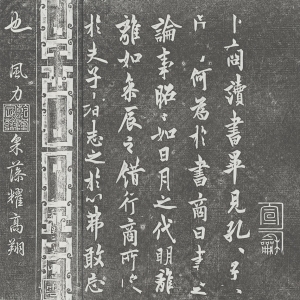 卜商讀書畢見孔〻子〻
問焉何為於書商曰書之
論事昭〻如日月之代明離
離如參辰之錯行商所受
於夫子者志之於心弗敢忘
也
風力采藻耀高翔